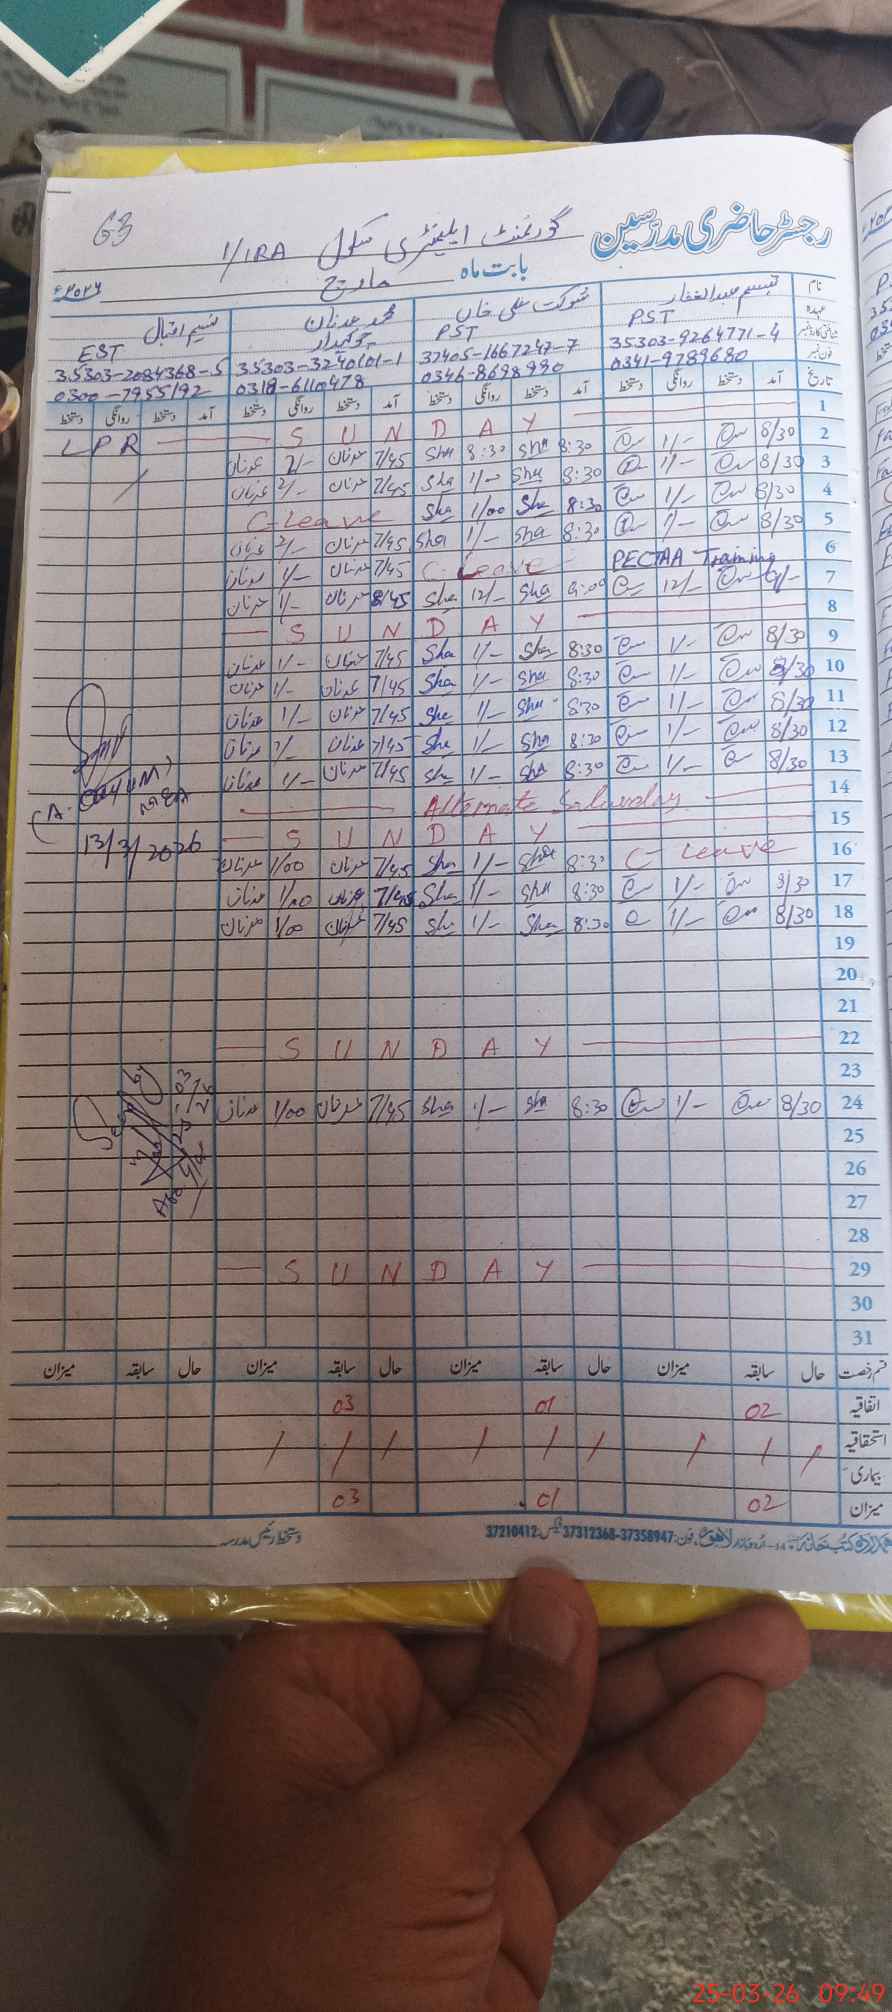 63
رجسٹر حاضری مدرسین گورنمنٹ ایلیمنٹری سکول 1/1RA
بابت ماہ مارچ ۲۰۲۶ء
نام تبسم عبدالغفار شوکت علی خان محمد عدنان نسیم اقبال
عہدہ PST PST چوکیدار EST
شناختی کارڈ نمبر 35303-9264771-4 32405-1667247-7 35303-3240101-1 35303-2084368-5
فون نمبر 0341-9789680 0346-8698990 0318-6110478 0300-7955192
تاریخ آمد دستخط روانگی دستخط آمد دستخط روانگی دستخط آمد دستخط روانگی دستخط آمد دستخط روانگی دستخط
1 SUNDAY LPR
2 8/30 1/- 8:30 Sha 8:30 Sha 7/45 عدنان 2/- عدنان
3 8/30 1/- 8:30 Sha 1/00 Sha 7/45 عدنان 2/- عدنان
4 8/30 1/- 8:30 Sha 1/00 Sha C-Leave
5 8/30 1/- 8:30 Sha 1/- Sha 7/45 عدنان 2/- عدنان
6 PECTAA Training C-Leave 7/45 عدنان 1/- عدنان
7 9/- 12/- 9:00 Sha 12/- Sha 8/45 عدنان 1/- عدنان
8 SUNDAY
9 8/30 1/- 8:30 Sha 1/- Sha 7/45 عدنان 1/- عدنان
10 8/30 1/- 8:30 Sha 1/- Sha 7/45 عدنان 1/- عدنان
11 8/30 1/- 8:30 Sha 1/- Sha 7/45 عدنان 1/- عدنان
12 8/30 1/- 8:30 Sha 1/- Sha 7/45 عدنان 1/- عدنان
13 8/30 1/- 8:30 Sha 1/- Sha 7/45 عدنان 1/- عدنان
14 Alternate Saturday
15 SUNDAY
16 C-Leave 8:30 Sha 1/- Sha 7/45 عدنان 1/00 عدنان
17 8/30 1/- 8:30 Sha 1/- Sha 7/45 عدنان 1/00 عدنان
18 8/30 1/- 8:30 Sha 1/- Sha 7/45 عدنان 1/00 عدنان
19
20
21
22 SUNDAY
23
24 8/30 1/- 8:30 Sha 1/- Sha 7/45 عدنان 1/00 عدنان
25
26
27
28
29 SUNDAY
30
31
(A. Qayyum)
13/3/2026
Seen by
قسم رخصت حال سابقہ میزان حال سابقہ میزان حال سابقہ میزان حال سابقہ میزان
اتفاقیہ 02 01 03
استحقاقیہ / / / / / / / / /
بیماری
میزان 02 01 03
کتب خانہ اردو بازار لاہور، فون: 37358947-37312368 فیکس: 37210412
دستخط رئیس مدرسہ
25-03-26 09:49